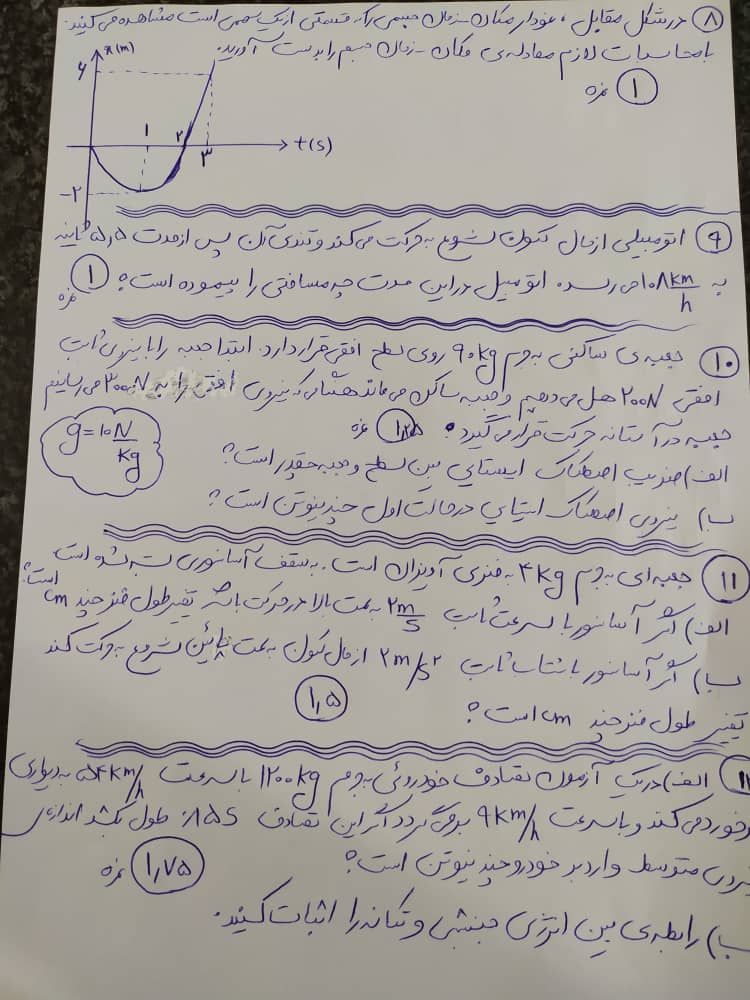 ۸) در شکل مقابل، نمودار مکان-زمان جسمی را که قسمتی از یک سهمی است مشاهده می‌کنید.
با محاسبات لازم معادله‌ی مکان-زمان جسم را بدست آورید.
۱ نمره
x(m)
۶
۱
۲
۳
t(s)
-۲
۹) اتومبیلی از حال سکون شروع به حرکت می‌کند و تندی آن پس از مدت ۵٫۵ ثانیه
به ۱۰۸ km/h می‌رسد. اتومبیل در این مدت چه مسافتی را پیموده است؟ ۱ نمره
۱۰) جعبه‌ی ساکنی به جرم ۹۰ kg روی سطح افقی قرار دارد. ابتدا جعبه را با نیروی ثابت
افقی ۲۰۰N هل می‌دهیم و جعبه ساکن می‌ماند هنگامی که نیروی افقی را به ۳۰۰N می‌رسانیم
جعبه در آستانه حرکت قرار می‌گیرد. ۱٫۲۵ نمره
g=۱۰ N/kg
الف) ضریب اصطکاک ایستایی بین سطح و جعبه چقدر است؟
ب) نیروی اصطکاک ایستایی در حالت اول چند نیوتن است؟
۱۱) جعبه‌ای به جرم ۴ kg به فنری آویزان است. به سقف آسانسوری بسته شده است
الف) اگر آسانسور با سرعت ثابت ۲ m/s به سمت بالا در حرکت باشد تغییر طول فنر چند cm است؟
ب) اگر آسانسور با شتاب ثابت ۲ m/s² از حال سکون به سمت پائین شروع به حرکت کند
تغییر طول فنر چند cm است؟ ۱٫۵
۱۲) الف) در یک آزمون تصادف خودروئی به جرم ۱۲۰۰ kg با سرعت ۵۴ km/h به دیواری
برخورد می‌کند و با سرعت ۹ km/h بر می‌گردد اگر این تصادف طول بکشد اندازه‌ی
نیروی متوسط وارد بر خودرو چند نیوتن است؟ ۱٫۷۵ نمره
ب) رابطه‌ی بین انرژی جنبشی و تکانه را اثبات کنید.